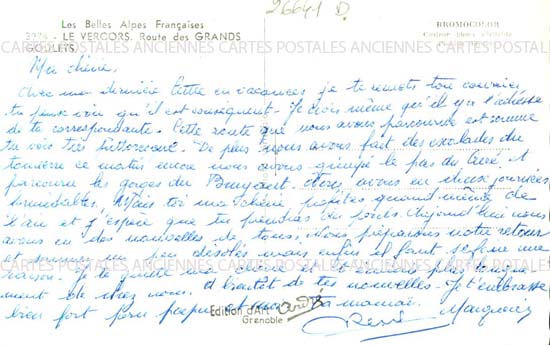 26641 D.
Les Belles Alpes Françaises
3974 - LE VERCORS. Route des GRANDS
GOULETS.
BROMOCOLOR
CARTES POSTALES ANCIENNES CARTES POSTALES ANCIENNES CARTES POSTALES
Ma chérie,
Avec ma dernière lettre en vacances je te remets ton courrier
tu peux voir qu'il est conséquent. Je crois même qu'il y a l'adresse
de ta correspondante. Cette route que nous avons parcourue est comme
tu vois très pittoresque. De plus nous avons fait des escalades du
tonnerre ce matin encore nous avons grimpé le pas du et
parcouru les gorges du Bruyant. Nous avons eu deux journées
formidables. Mais toi ma chérie profites quand même de
l'air et j'espère que tu prendras du poids. Aujourd'hui nous
avons eu des nouvelles de tous. Nous préparons notre retour
et sommes un peu désolés mais enfin il faut se faire une
raison. Je te quitte ma chérie et t'écrirai plus longue-
ment de chez nous. A bientôt de tes nouvelles. Je t'embrasse
bien fort pour papa et moi. Ta maman
René
Edition d'Art
Grenoble